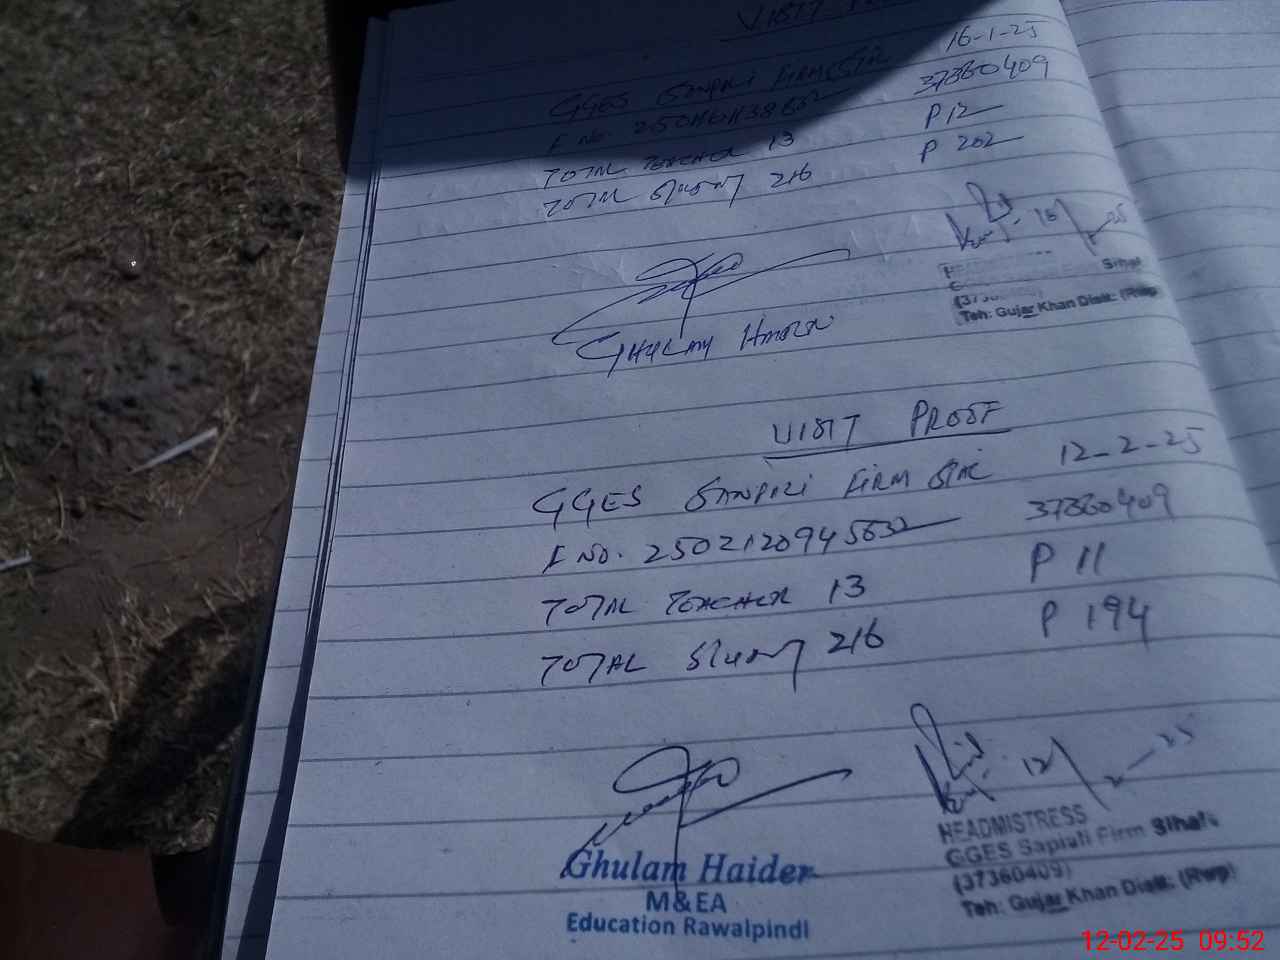 VISIT
GGES SANPILI FIRM SIHL 16-1-25
F NO. 37360409
TOTAL TEACHER 13 P 12
TOTAL STUDENT 216 P 202
16/1-25
Sihal
Teh: Gujar Khan Distt: (Rwp)
GHULAM HAIDER
VISIT PROOF
GGES SANPILI FIRM SIHL 12-2-25
F NO. 2502120945632 37360409
TOTAL TEACHER 13 P 11
TOTAL STUDENT 216 P 194
12/2-25
HEADMISTRESS
GGES Sapiuli Firm Sihal
(37360409)
Teh: Gujar Khan Distt: (Rwp)
Ghulam Haider
M&EA
Education Rawalpindi
12-02-25 09:52